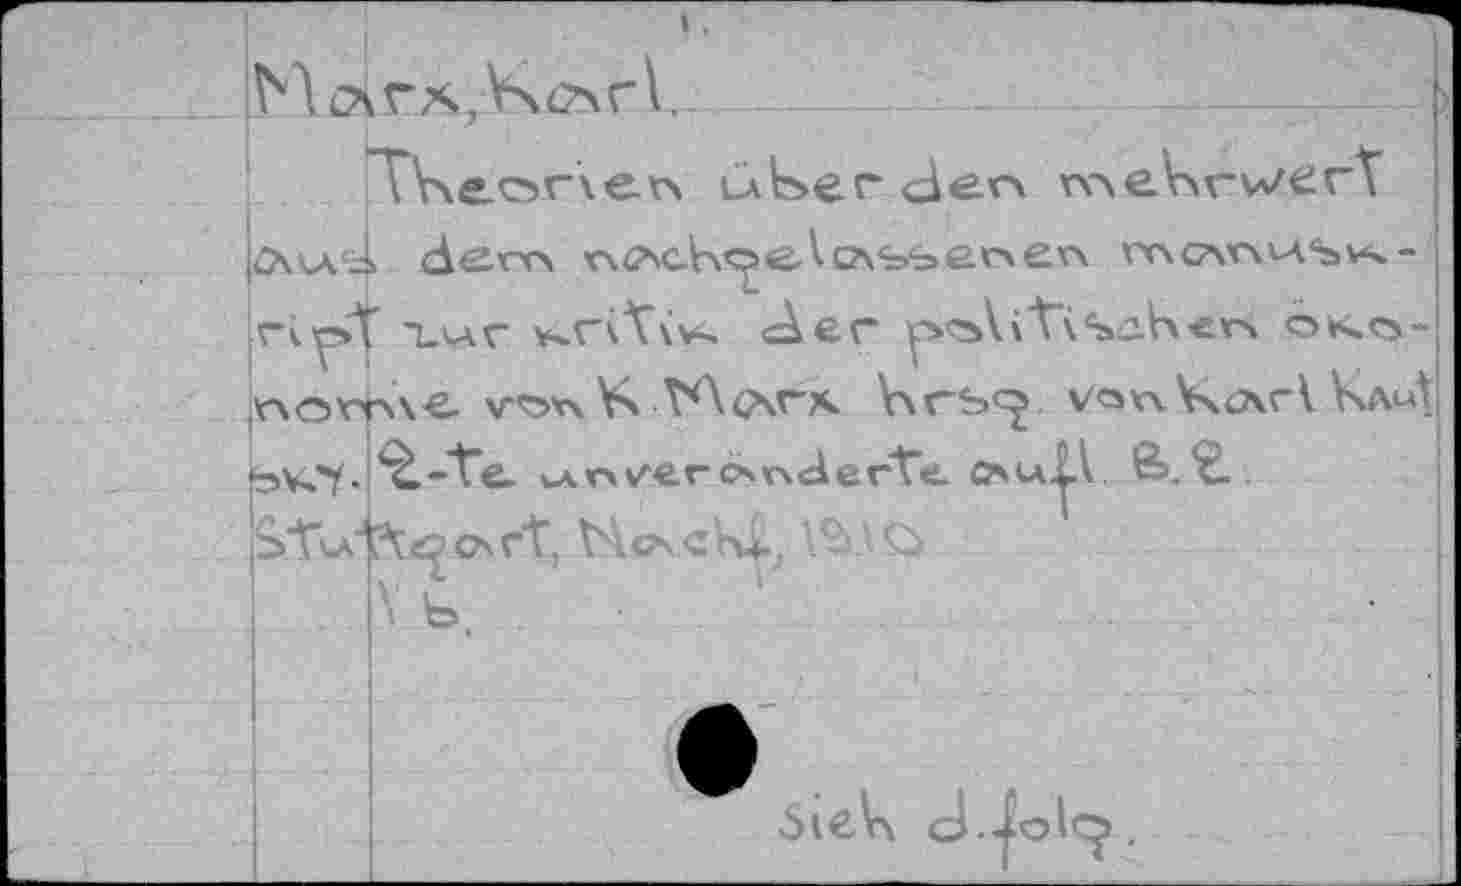 1.
Marx, Karl.
Theorien über den mehrwert
aus dem nachgelassenen manusk-
ript zur kritik der politischen öko-
nomie von K Marx hrsg. von Karl Kaut
sky. 2-te unveränderte aufl B. 2.
Stuttgart, Nachf., 1910
\ b.
Sieh d. folg.